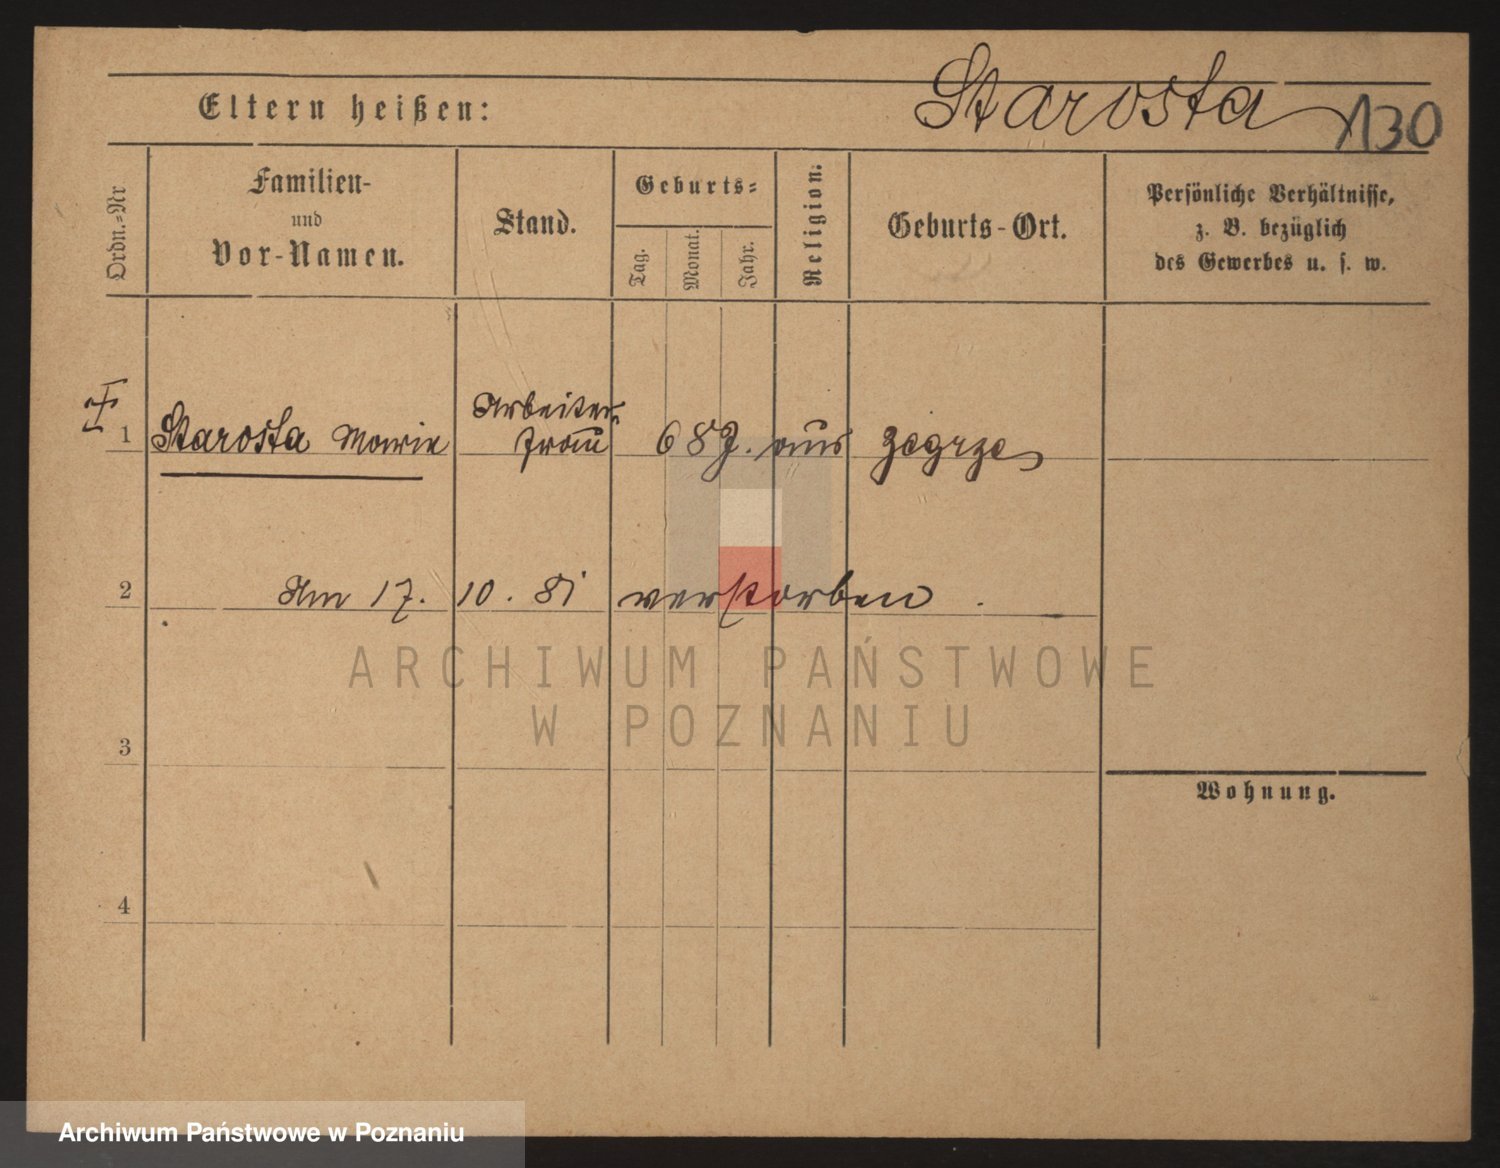 Starosta 130
Eltern heißen:
Ordn.-Nr
Familien-
und
Vor-Namen.
Stand.
Geburts-
Tag.
Monat.
Jahr.
Religion.
Geburts-Ort.
Persönliche Verhältnisse,
z. B. bezüglich
des Gewerbes u. s. w.
Arbeiter
1 Starosta Marie Frau 68 J. aus Zegrze
2 Am 17. 10. 81 verstorben.
ARCHIWUM PAŃSTWOWE
W POZNANIU
3
Wohnung.
4
Archiwum Państwowe w Poznaniu